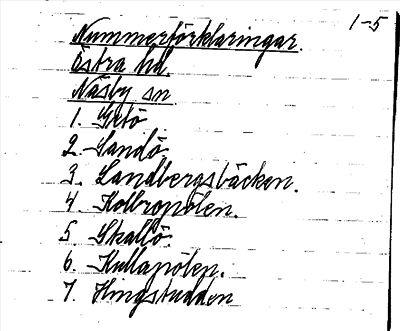 1-5
Nummerförklaringar.
Östra hd.
Näsby sn.
1. Getö
2. Sandö.
3. Sandbergsbäcken.
4 Kolbropölen.
5 Skallö.
6. Kullapölen.
7. Kingstudden